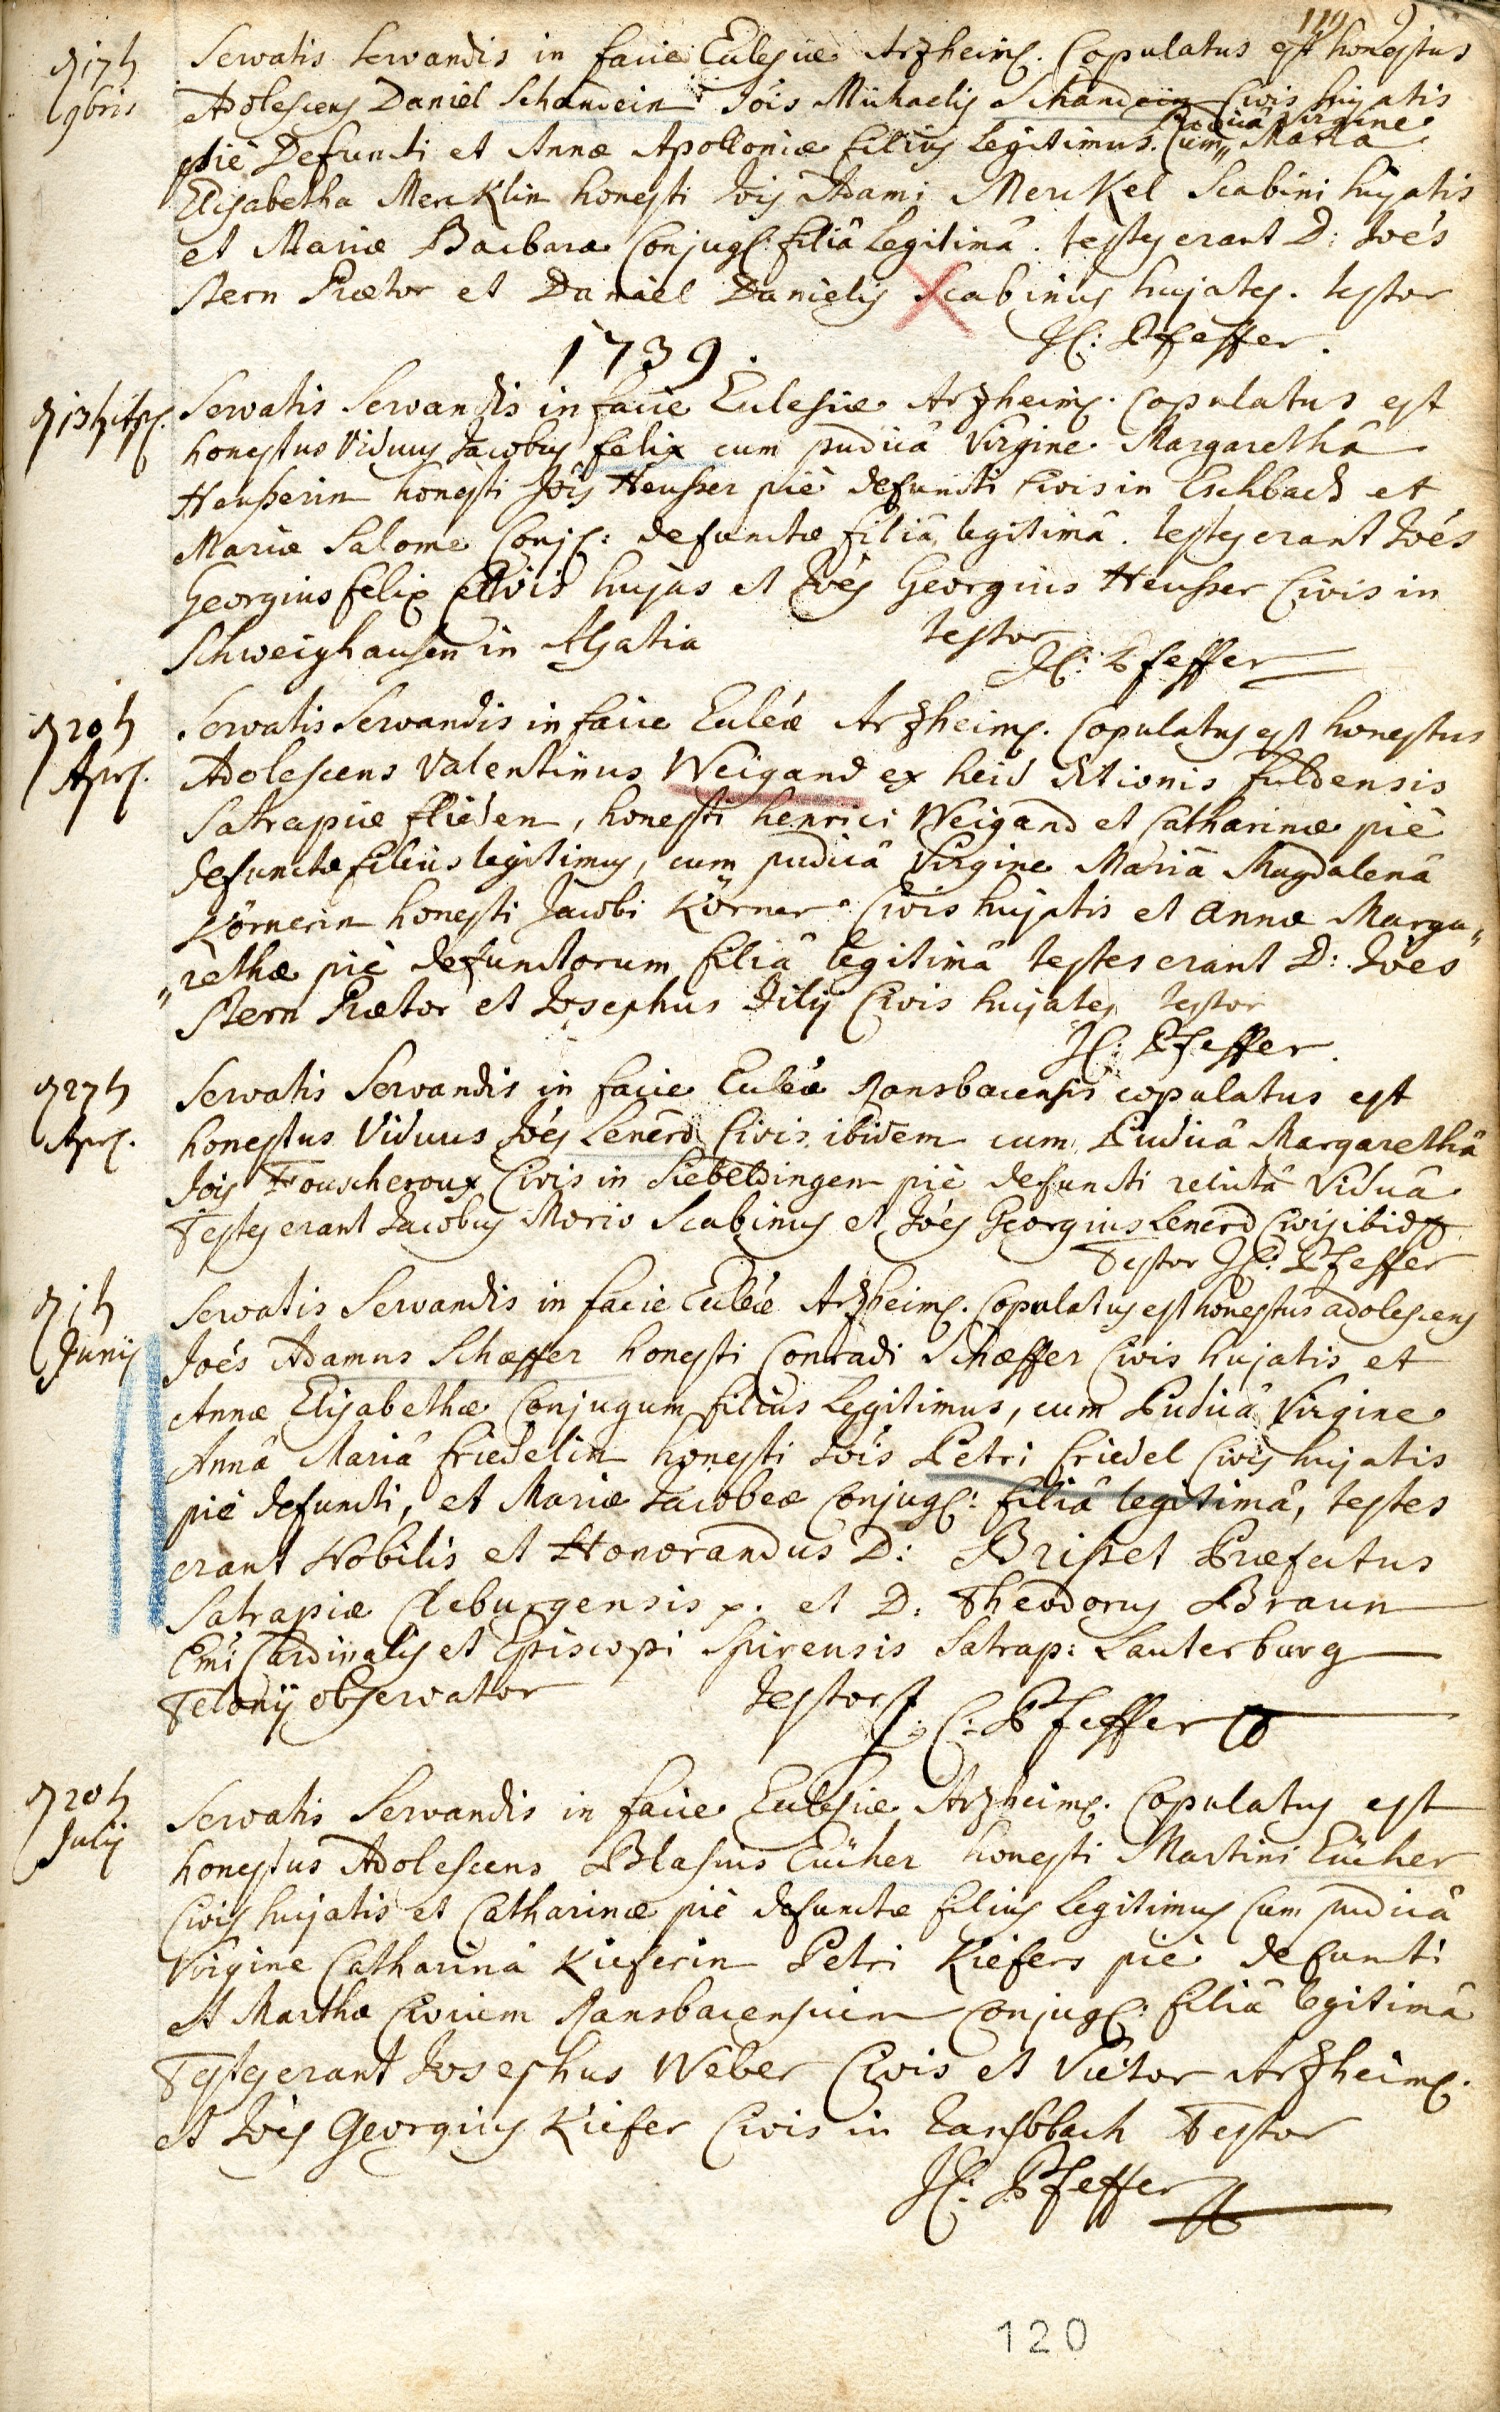 119
d 17t Servatis Servandis in facie Ecclesiae Arzheim: Copulatus est honestus
9bris Adolescens Daniel Schandein Jois Michaelis Schandein Civis hujatis
pudicâ Virgine
piè Defuncti et Annae Apolloniae filius Legitimus. Cum Maria
Elisabetha Mercklin honesti Jois Adami Merckel Scabini hujatis
et Mariae Barbarae Conjug: filiâ Legitimâ. testes erant D: Joês
Stern Praetor et Daniel Danielis Scabinus hujates. testor
JC: Pfeffer.
1739.
d 13t Apr: Servatis Servandis in facie Ecclesiae Arzheim: Copulatus est
honestus Viduus Jacobus felix cum pudicâ Virgine Margarethâ
Heußerin honesti Jôis Heußer piè defuncti Civis in Eschbach et
Mariae Salome Conj: defunctae filiâ legitimâ. testes erant Joês
Georgius felix Civis hujas et Joês Georgius Heußer Civis in
Schweighausen in Alsatia testor
JC: Pfeffer
d 20t Servatis Servandis in facie Eccleae Arzheim: Copulatus est honestus
Apr: Adolescens Valentinus Weigand ex heid ditionis fuldensis
Satrapiae flieden, honesti henrici Weigand et Catharinae piè
defunctae filius legitimus, cum pudicâ Virgine Mariâ Magdalenâ
Körnerin honesti Jacobi Körner Civis hujatis et Annae Marga„
„rethae piè defunctorum filiâ legitimâ testes erant D: Joês
Stern Praetor et Josephus Jily Civis hujates testor
JC: Pfeffer.
d 27t Servatis Servandis in facie Eccleae Ransbacensis copulatus est
Apr: honestus Viduus Joês Lenerd Civis ibidem cum Pudicâ Margarethâ
Jois Foucheroux Civis in Siebeldingen piè defuncti relictâ Viduâ
Testes erant Jacobus Morio Scabinus et Joês Georgius Lenerd Civis ibid:
Testor JC: Pfeffer
d 1t Servatis Servandis in facie Eccleae Arzheim: Copulatus est honestus adolescens
Junij Joês Adamus Schaeffer honesti Conradi Schaeffer Civis hujatis et
Annae Elisabethae Conjugum filius Legitimus, cum Pudicâ Virgine
Annâ Mariâ friedelin honesti Jois Petri friedel Civis hujatis
piè defuncti, et Mariae Jacobeae Conjug: filiâ legitimâ, testes
erant Nobilis et Honorandus D: Brißet Praefectus
Satrapiae Cleburgensis p. et D: Theodorus Braun
Emi Cardinalis et Episcopi Spirensis Satrap: Lauterburg
Telonij observator testor J: C: Pfeffer
d 20t Servatis Servandis in facie Ecclesiae Arzheim: Copulatus est
Julij honestus Adolescens Blasius Eücher honesti Martini Eücher
Civis hujatis et Catharinae piè defunctae filius Legitimus Cum pudicâ
Virgine Catharinâ Kieferin Petri Kiefers piè defuncti
et Marthae Civium Ransbacensium Conjug: filiâ legitimâ
Testes erant Josephus Weber Civis et Viëtor Arzheim:
et Joês Georgius Kiefer Civis in Ransbach Testor
JC: Pfeffer
120